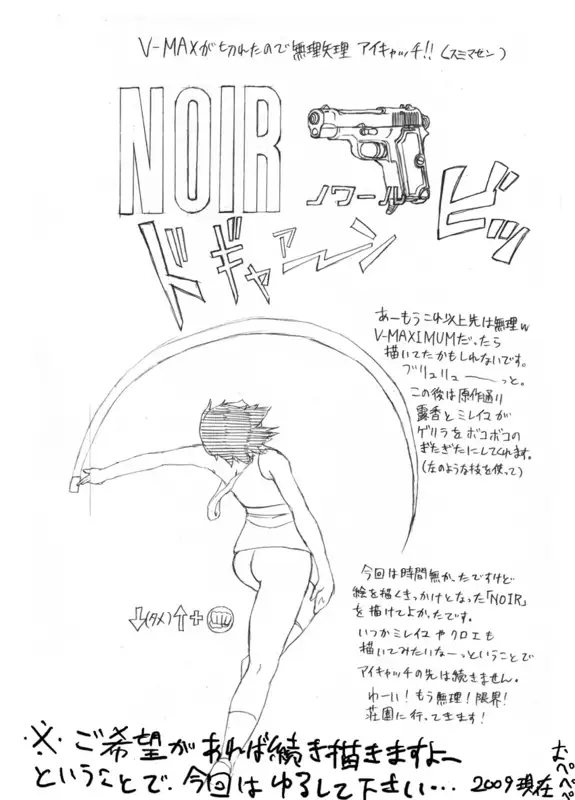 V-MAXが切れたので無理矢理 アイキャッチ!!(スミマセン)
NOIR
ノワール
ビッ
ドギャァーン
あーもうこれ以上先は無理w
V-MAXIMUMだったら
描いてたかもしれないです。
ブリュリューーっと。
この後は原作通り
霧香とミレイユが
ゲリラをボコボコの
ぎたぎたにしてくれます。
(左のような技を使って)
↓(タメ)↑+
今回は時間無かったですけど
絵を描くきっかけとなった「NOIR」
を描けてよかったです。
いつかミレイユやクロエも
描いてみたいなーっということで
アイキャッチの先は続きません。
わーい!もう無理!限界!
荘園に行ってきます!
※・ご希望があれば続き描きますよー
ということで、今回はゆるして下さい…
2009現在